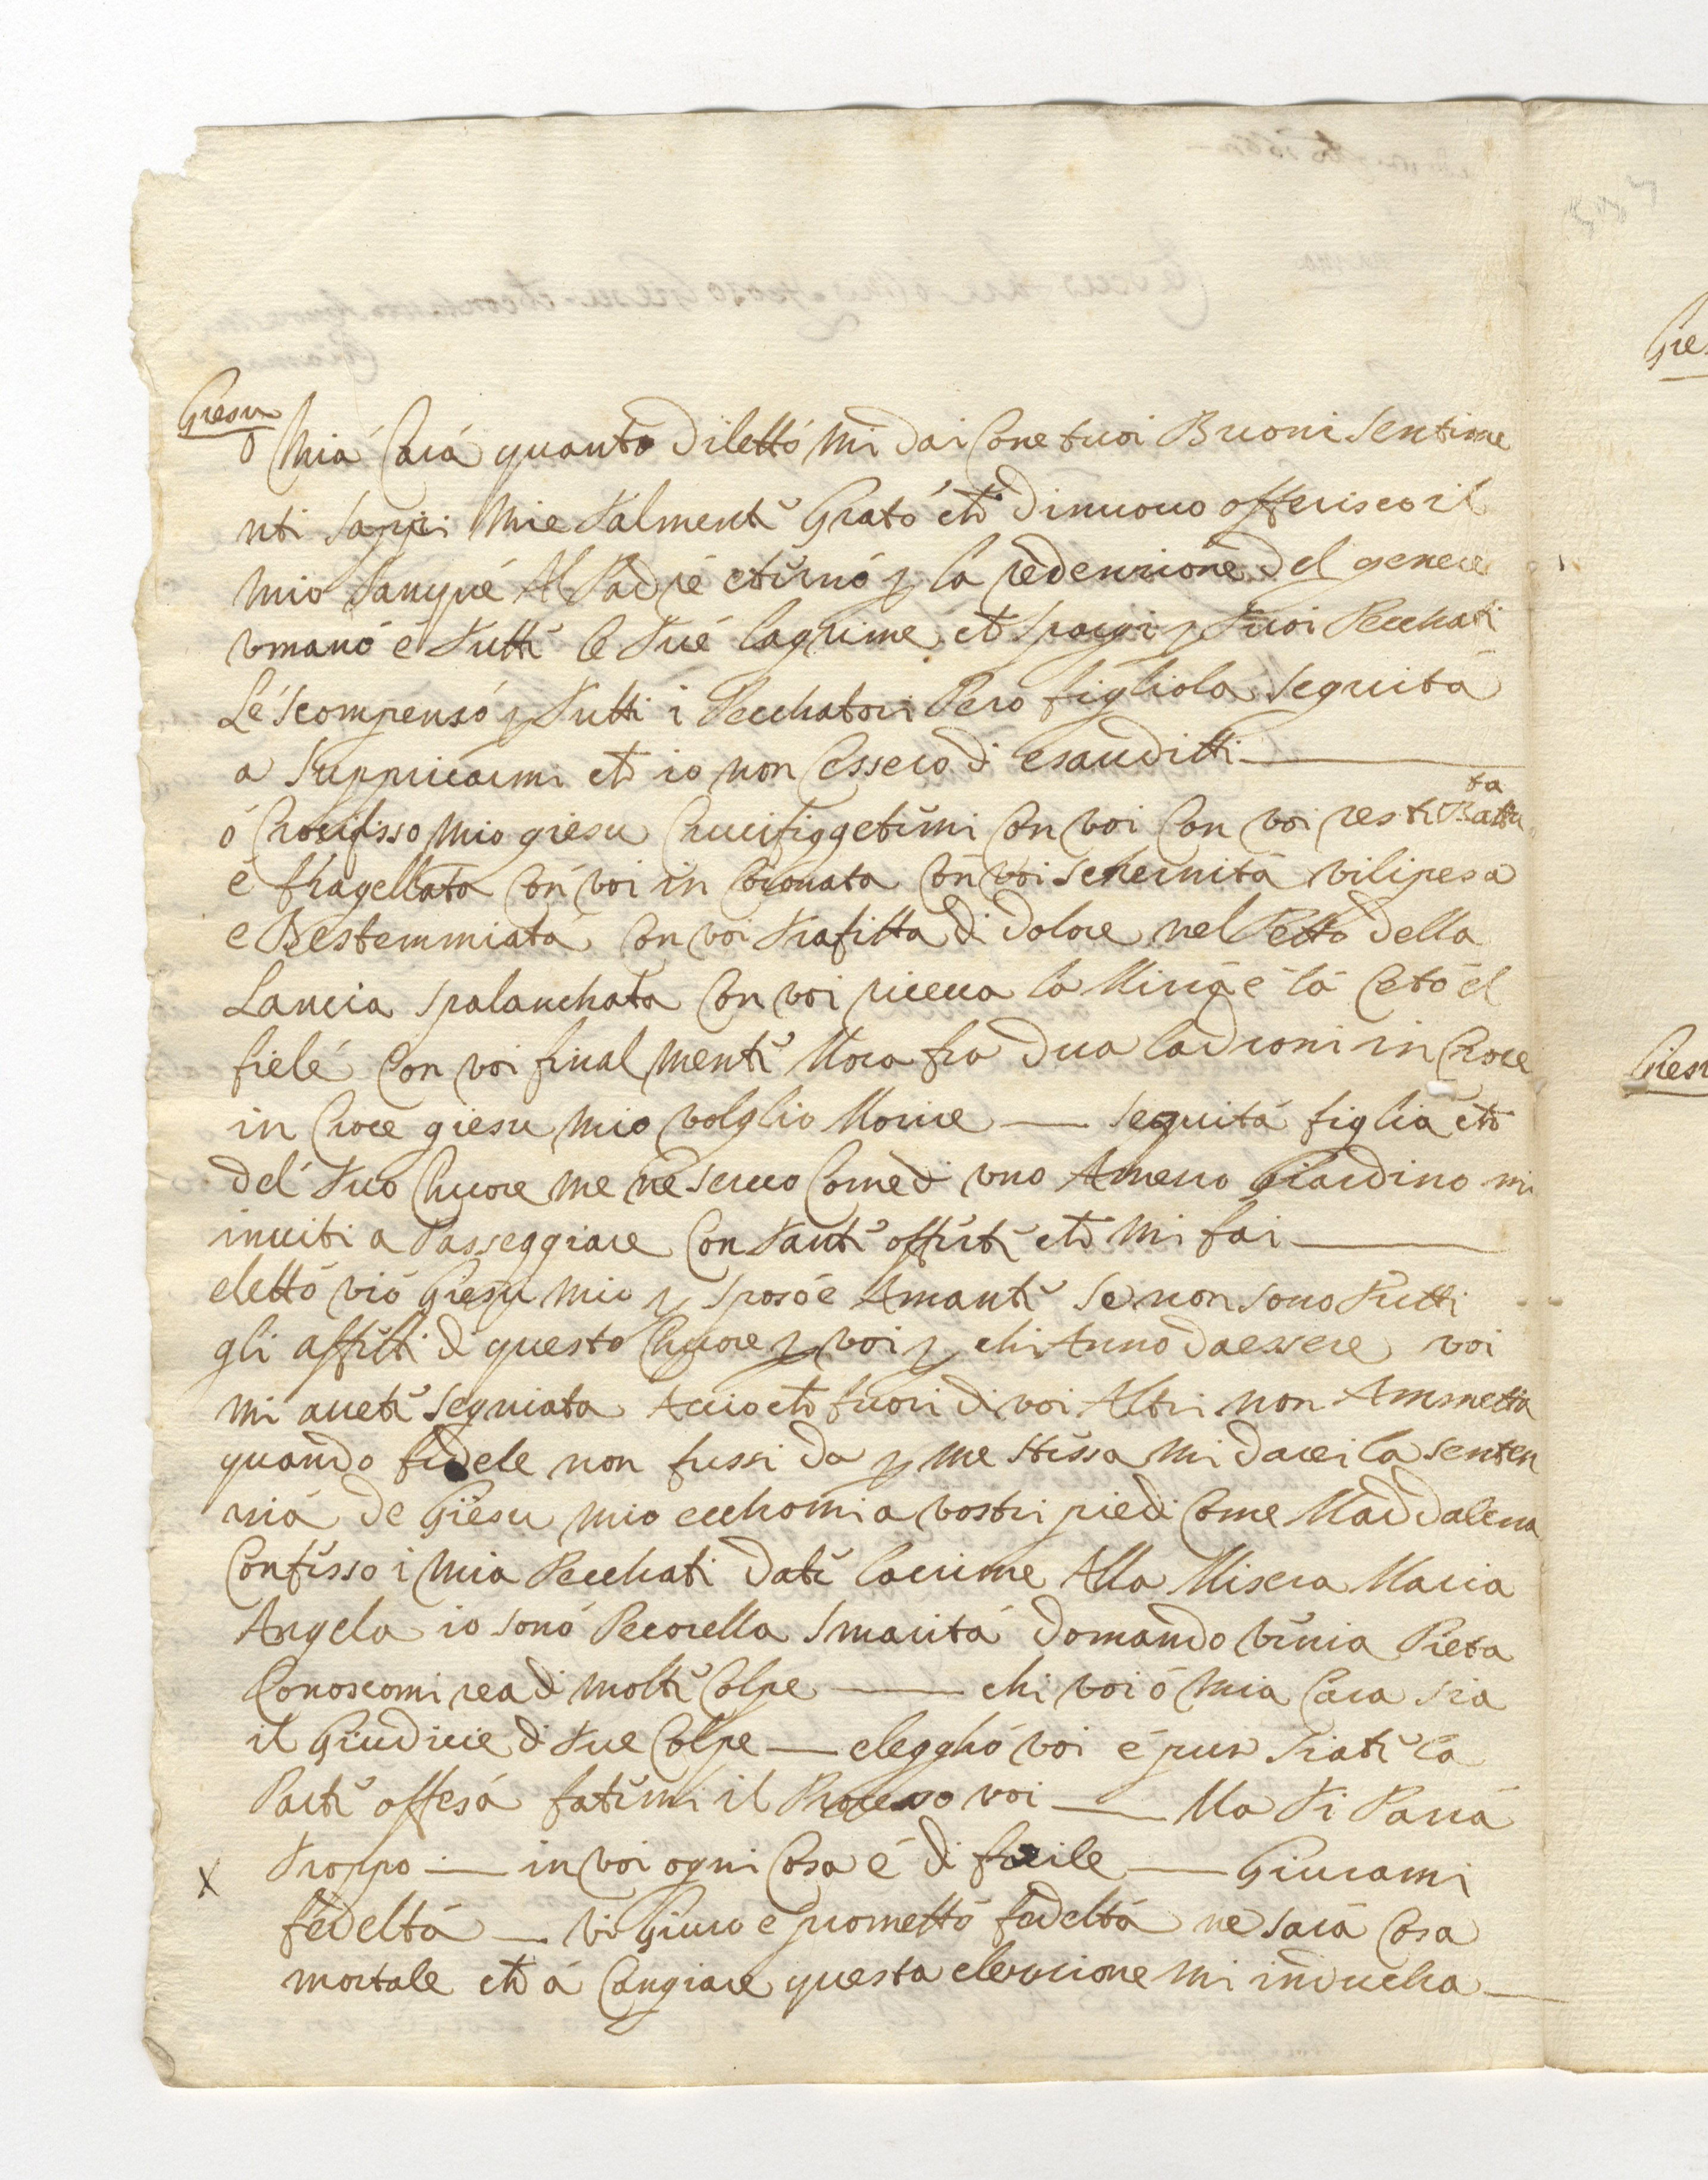 Giesu
o mia Cara quanto diletto mi dai Cone tuoi Buoni sentime
nti sappi mie talmente Grato che dinuovo offerisco il
mio sangue Al Padre eterno p la redenzione del genere
vmano é tutte le tue lagrime che spargi p tuoi Pecchati
Le scompenso p tutti i Pecchatori Pero figliola seguita
a suppricarmi che io non Cessero di esauditti
ó Crocifisso mio giesu Crucifiggetemi Con voi Con voi resti Battu
ta
e fragellata Con voi in Coronata Con voi schernita vilipesa
e Bestemmiata Con voi trafitta di dolore nel Petto della
Lancia spalanchata Con voi riceva la Mirra e la Ceto el
fiele Con voi final mente Mora fra dua ladroni in Croce
in Croce giesu mio volglio Morire — seguita figlia che
del tuo Chuore me ne servo Come di vno Ameno Giardino mi
inviti a Passeggiare Con tante offerte che mi fai
eletto vió Giesu mio p sposo é Amante se non sono tutti
gli affetti di questo Chuore p voi p chi Anno da essere voi
mi avete segniata Accio che fuori di voi Altri non Ammetta
quando fedele non fussi da p me stessa mi darei la senten
zia de Giesu mio ecchomi a vostri piedi Come Maddalena
Confesso i mia Pecchati date lacrime Alla Misera Maria
Angela io sono Pecorella smarita domando venia Pieta
Conoscomi rea di molte Colpe — chi voi ó mia Cara sia
il Giudicie di tue Colpe — elegghó voi é pur siate la
Parte offesa fatemi il Processo voi — Ma ti Parrá
X troppo — in voi ogni Cosa é di facile — Giurami
fedeltá — vi Giuro e prometto fedeltá ne sará Cosa
mortale che á Cangiare questa elezzione mi inducha
Gies
Giesu